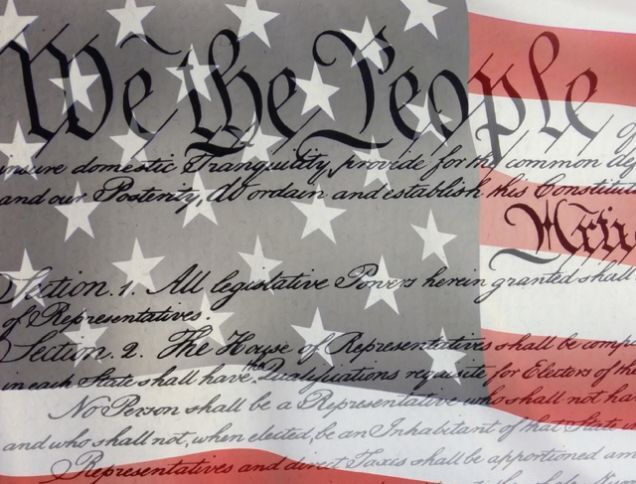 We the People
insure domestic Tranquility, provide for the common
and our Posterity, do ordain and establish this
Section. 1. All legislative Powers herein granted shall
of Representatives.
Section. 2. The House of Representatives shall be
in each State shall have the Qualifications requisite for Electors of the
No Person shall be a Representative who shall not
and who shall not, when elected, be an Inhabitant of that State
Representatives and direct Taxes shall be apportioned